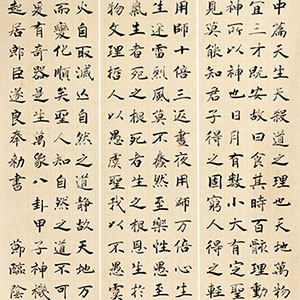 中篇天生天殺道之理也天地萬物
宜三才既安故曰食其時百骸理動萬
神所以神也日月有數小大有定聖
見莫能知君子得之固窮小人得
用師十倍三返晝夜用師萬倍心生
生迅雷烈風莫不蠢然至樂性
氣生者死之根死者生之根恩生於
物文理哲人以愚虞聖我以不愚虞
火自取滅亡自然之道靜故天地萬
而變化順矣聖人知自然之道不可
爰有奇器是生萬象八卦甲子神機
起居郎臣遂良奉勅書 鄭臨陰